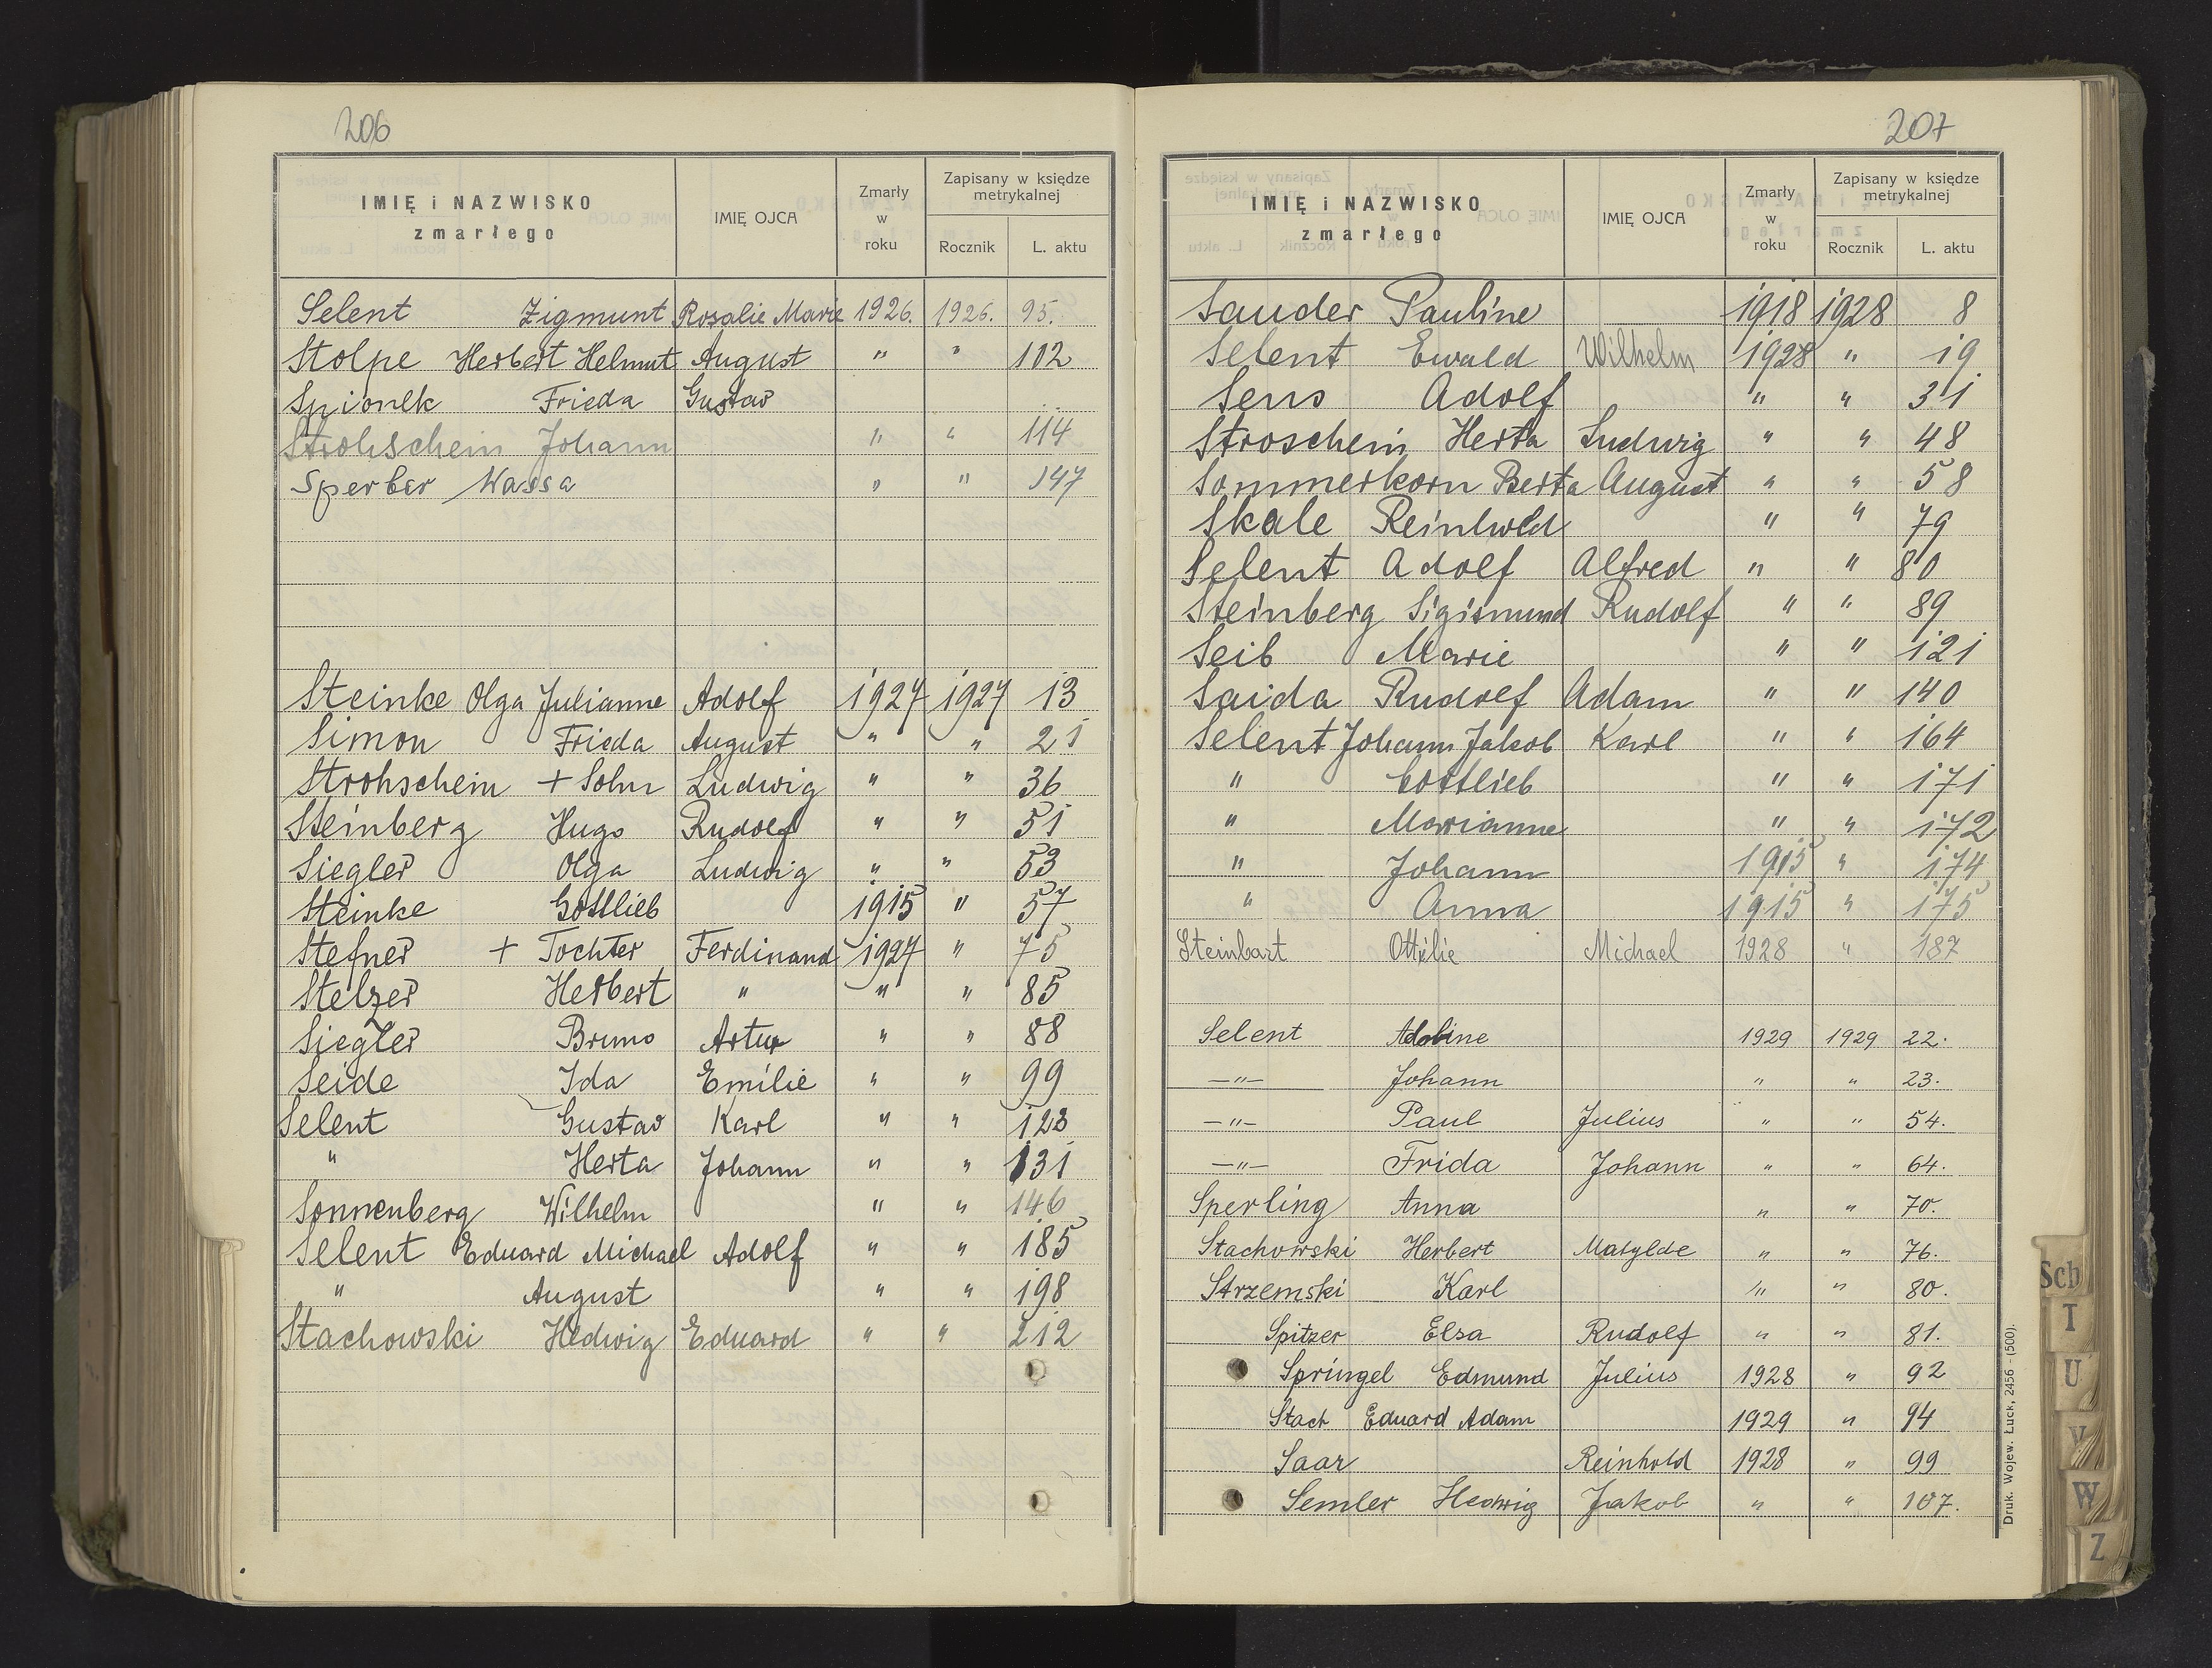 206
IMIĘ i NAZWISKO zmarłego IMIĘ OJCA Zmarły w roku Zapisany w księdze metrykalnej Rocznik L. aktu
Selent Zigmunt Rosalie Marie 1926. 1926. 95.
Stolpe Herbert Helmut August " " 102
Spionek Frieda Gustav
Strohschein Johann " " 114
Sperber Wassa " " 147
Steinke Olga Julianne Adolf 1927 1927 13
Simon Frieda August " " 21
Strohschein + Sohn Ludwig " " 36
Steinberg Hugo Rudolf " " 51
Siegler Olga Ludwig " " 53
Steinke Gottlieb 1915 " 57
Stefner + Tochter Ferdinand 1927 " 75
Stelzer Herbert " " " 85
Siegler Bruno Artur " " 88
Seide Ida Emilie " " 99
Selent Gustav Karl " " 123
" Herta Johann " " 131
Sonnenberg Wilhelm " " 146
Selent Eduard Michael Adolf " " 185
" August " " 198
Stachowski Hedwig Eduard " " 212
207
IMIĘ i NAZWISKO zmarłego IMIĘ OJCA Zmarły w roku Zapisany w księdze metrykalnej Rocznik L. aktu
Sauder Pauline 1918 1928 8
Selent Ewald Wilhelm 1928 " 19
Sens Adolf " " 31
Stroschein Herta Ludwig " " 48
Sommerkorn Berta August " " 58
Skale Reinhold " " 79
Selent Adolf Alfred " " 80
Steinberg Sigismund Rudolf " " 89
Seib Marie " " 121
Saida Rudolf Adam " " 140
Selent Johann Jakob Karl " " 164
" Gottlieb " " 171
" Marianne " " 172
" Johann 1915 " 174
" Anna 1915 " 175
Steinbart Ottilie Michael 1928 " 187
Selent Adoline 1929 1929 22.
—"— Johann " " 23.
—"— Paul Julius " " 54.
—"— Frida Johann " " 64.
Sperling Anna " " 70.
Stachowski Herbert Matylde " " 76.
Strzemski Karl " " 80.
Spitzer Elsa Rudolf " " 81.
Springel Edmund Julius 1928 " 92
Stach Eduard Adam 1929 " 94
Saar Reinhold 1928 " 99
Semler Hedwig Jakob " " 107.
Druk. Wojew. Łuck, 2456 - (500).
Sch
T
U
V
W
Z